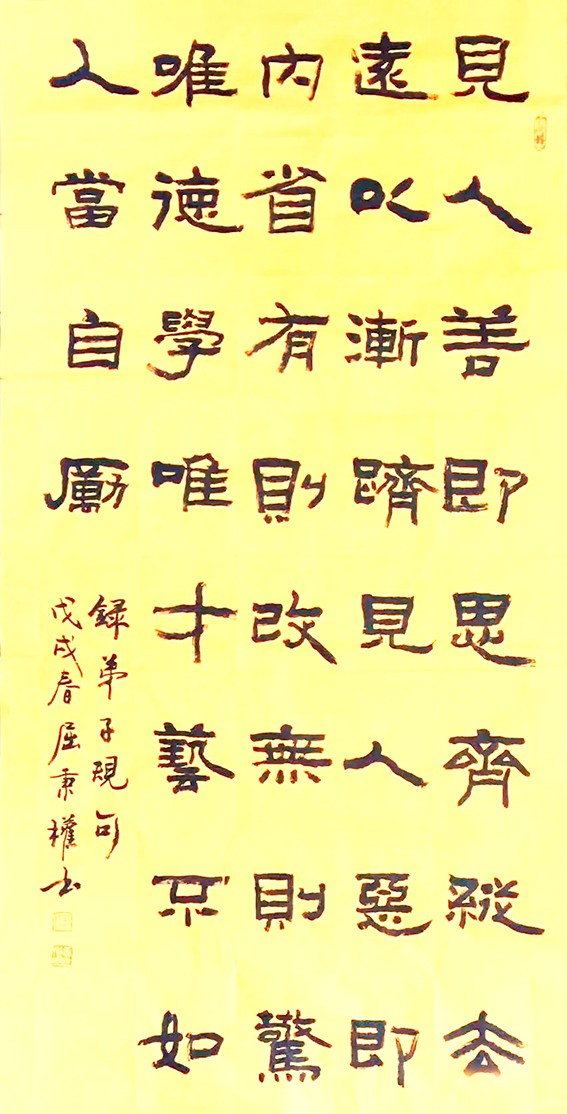 見人善即思齊縱去
遠以漸躋見人惡即
內省有則改無則驚
唯德學唯才藝不如
人當自勵
録弟子規句
戊戌春屈秉權書